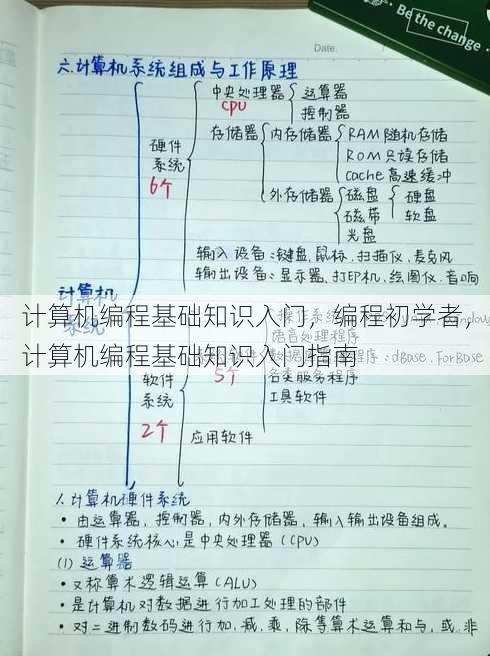 Be the change
Date.
六.计算机系统组成与工作原理
中央处理器 运算器
CPU 控制器
硬件系统
6个
存储器 内存储器 RAM随机存储
ROM 只读存储
cache高速缓冲
外存储器 磁盘 硬盘
磁带 软盘
光盘
输入设备:键盘.鼠标.扫描仪.麦克风
输出设备:显示器.打印机.绘图仪.音响
计算机系统
计算机编程基础知识入门，编程初学者，
计算机编程基础知识入门指南
操作系统
语言处理程序
程序:dBase.ForBase
5个
各类服务程序
工具软件
软件系统
2个
应用软件
1.计算机硬件系统
• 由运算器,控制器,内外存储器,输入输出设备组成。
• 硬件系统核心是中央处理器(CPU)
(1) 运算器
• 又称算术逻辑运算(ALU)
• 是计算机对数据进行加工处理的部件
• 对二进制数码进行加.减.乘,除等算术运算和与,或.非